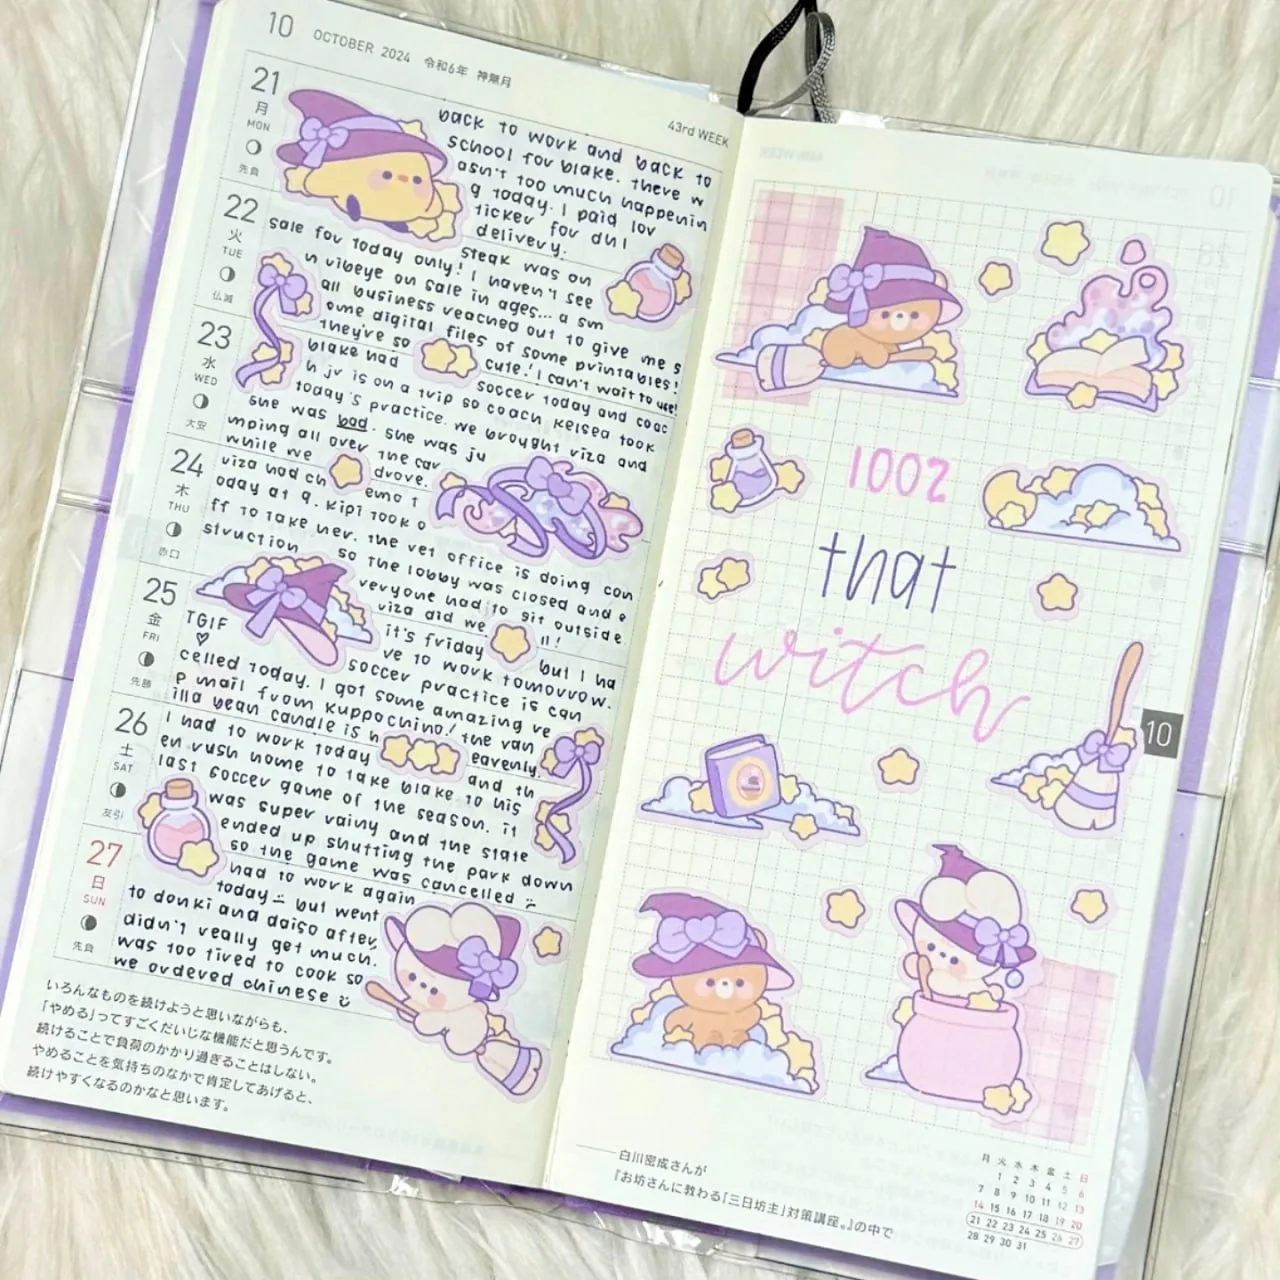 10 OCTOBER 2024 令和6年 神無月
43rd WEEK
21
月
MON
先負
back to work and back to
school for blake. there w
asn't too much happenin
g today. I paid lov
ticker for dhl
delivery.
22
火
TUE
仏滅
steak was on
sale for today only! I haven't see
n vibeye on sale in ages... a sm
all business reached out to give me s
ome digital files of some printables!
they're so cute! I can't wait to use!
23
水
WED
大安
blake had soccer today and coac
h jv is on a trip so coach kelsea took
today's practice. we brought viza and
she was bad. she was ju
mping all over the car
while we drove.
24
木
THU
赤口
viza had chemo t
oday at 9. kipi took o
ff to take her. the vet office is doing con
struction so the lobby was closed and e
veryone had to sit outside.
viza did well!
25
金
FRI
先勝
TGIF
♡
it's friday but I ha
ve to work tomorrow.
soccer practice is can
celled today. I got some amazing ve
p mail from kuppochino! the van
illa bean candle is heavenly.
26
土
SAT
友引
I had to work today and th
en rush home to take blake to his
last soccer game of the season. it
was super rainy and the state
ended up shutting the park down
so the game was cancelled
27
日
SUN
先負
had to work again
today but went
to donki and daiso after,
didn't really get much.
was too tired to cook so
we ordered chinese
いろんなものを続けようと思いながらも、
「やめる」ってすごくだいじな機能だと思うんです。
続けることで負荷のかかり過ぎることはしない。
やめることを気持ちのなかで肯定してあげると、
続けやすくなるのかなと思います。
100%
that
witch
10
——白川密成さんが
『お坊さんに教わる「三日坊主」対策講座。』の中で
月 火 水 木 金 土 日
1 2 3 4 5 6
7 8 9 10 11 12 13
14 15 16 17 18 19 20
21 22 23 24 25 26 27
28 29 30 31